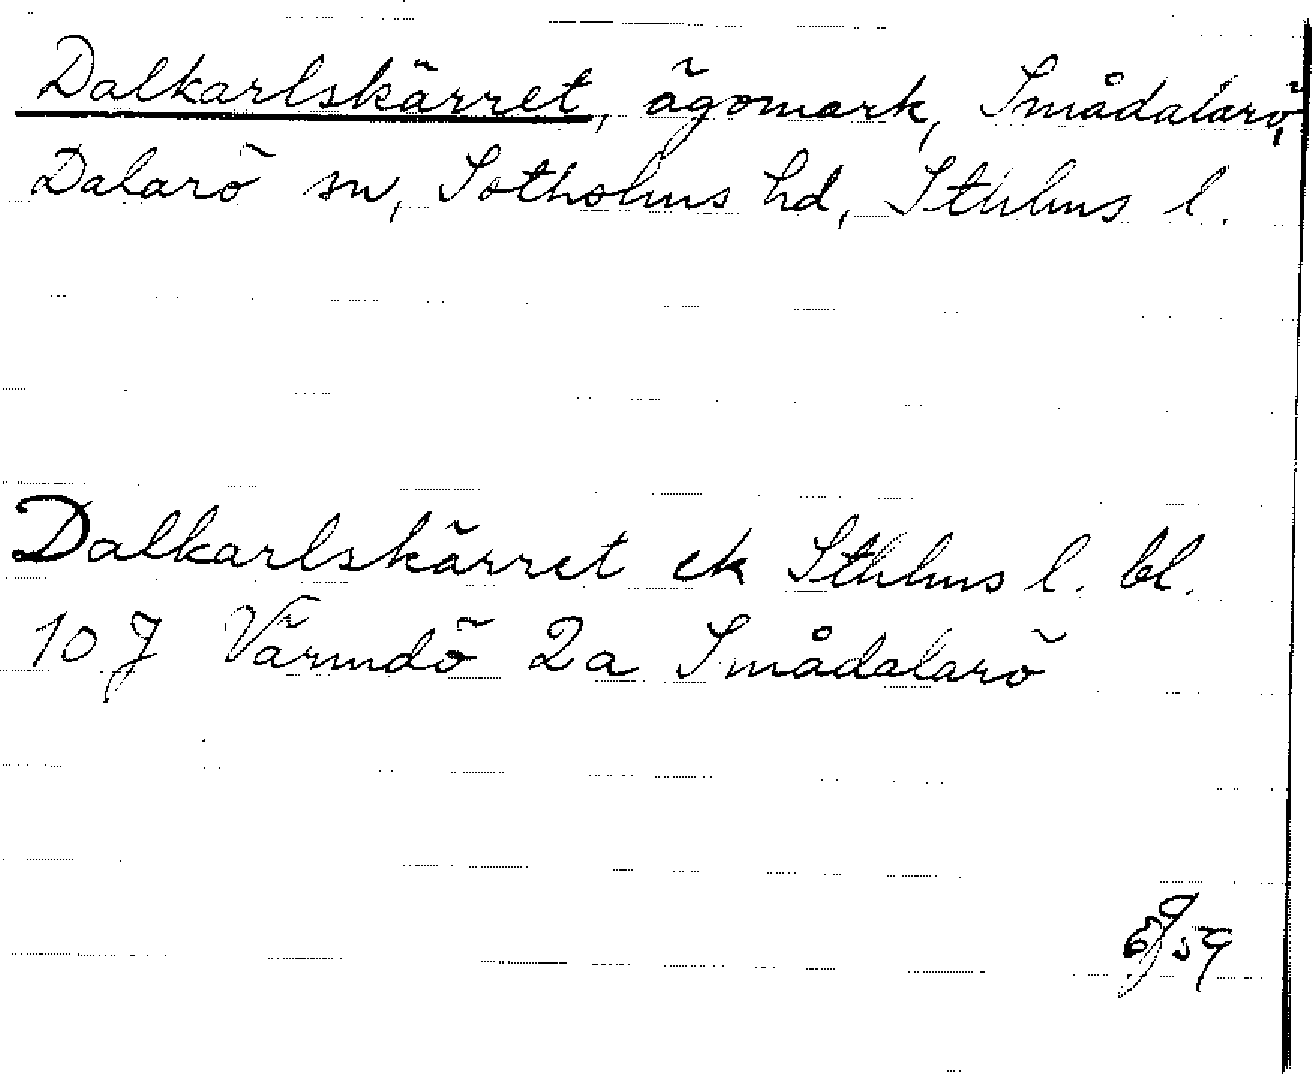 Dalkarlskärret, ägomark, Smådalarö,
Dalarö sn, Sotholms hd, Sthlms l.
Dalkarlskärret ek Sthlms l. bl.
10 J Värmdö 2a Smådalarö
59